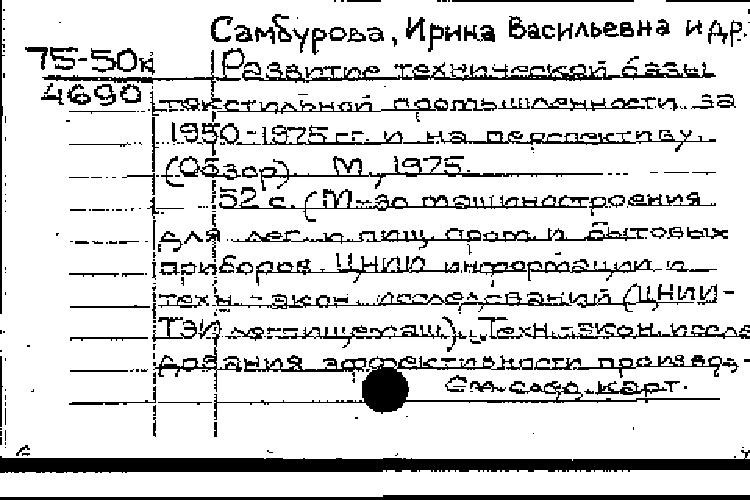 Самбурова, Ирина Васильевна и др.
75-50к Развитие технической базы
4690 текстильной промышленности за
1950-1975 гг. и на перспективу.
(Обзор). М., 1975.
52 с. (М-во машиностроения
для лег. и пищ. пром. и бытовых
приборов. ЦНИИ информации и
техн.-экон. исследований (ЦНИИ-
ТЭИлегпищемаш). Техн.-экон. иссле
дования эффективности производ-
См. след. карт.